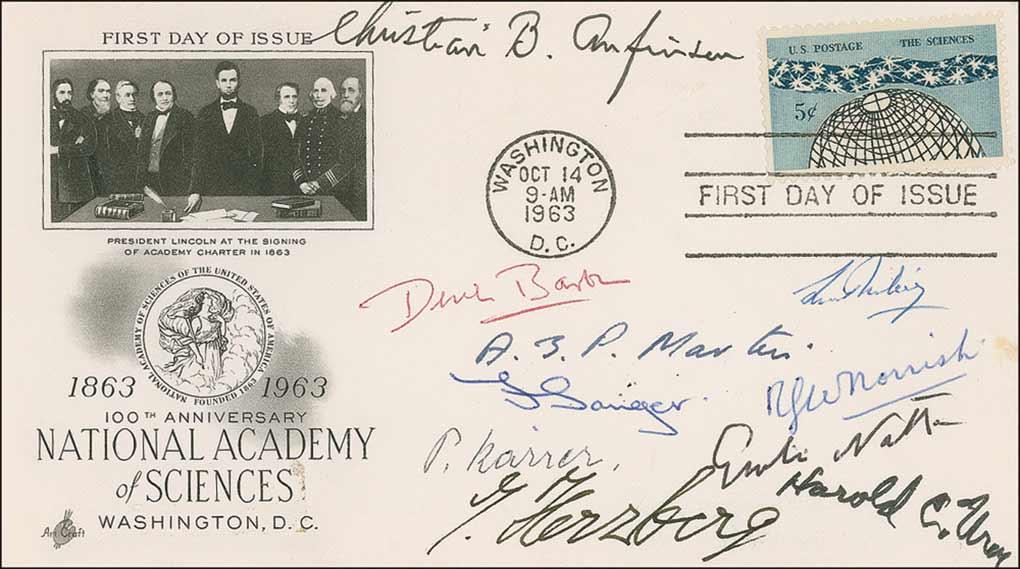 FIRST DAY OF ISSUE
Christian B. Anfinsen
U.S. POSTAGE THE SCIENCES
5¢
WASHINGTON
OCT 14
9-AM
1963
D. C.
FIRST DAY OF ISSUE
PRESIDENT LINCOLN AT THE SIGNING
OF ACADEMY CHARTER IN 1863
NATIONAL ACADEMY OF SCIENCES OF THE UNITED STATES OF AMERICA
FOUNDED 1863
1863 1963
100TH ANNIVERSARY
NATIONAL ACADEMY
of SCIENCES
WASHINGTON, D. C.
Art Craft
Derek Barton
A. J. P. Martin.
F Sanger.
RGW Norrish
P. Karrer.
Giulio Natta
Harold C. Urey
G. Herzberg